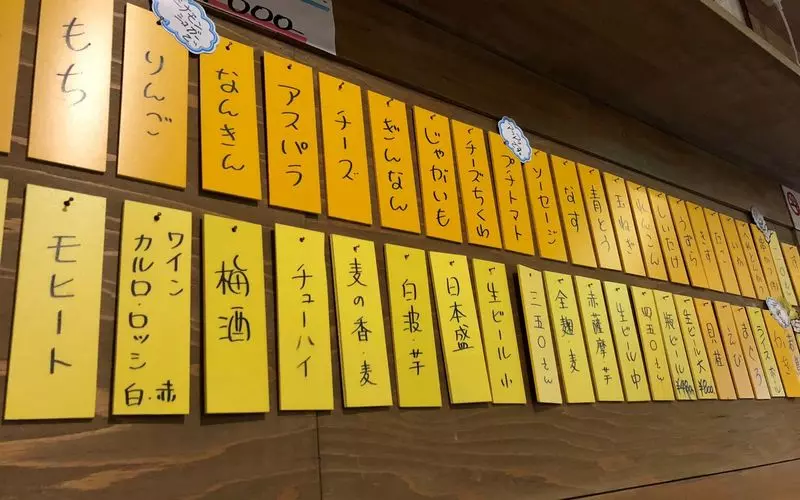 000-
もち
りんご
なんきん
アスパラ
チーズ
ぎんなん
じゃがいも
チーズちくわ
プチトマト
ソーセージ
なす
青とう
玉ねぎ
れんこん
しいたけ
うずら
きす
たこ
いか
モヒート
ワイン
カルロ・ロッシ
白・赤
梅酒
チューハイ
麦の香・麦
白波・芋
日本盛
生ビール小
二五〇もん
全麹・麦
赤薩摩・芋
生ビール中
四五〇もん
瓶ビール
生ビール大
¥800
貝柱
えび
まぐろ